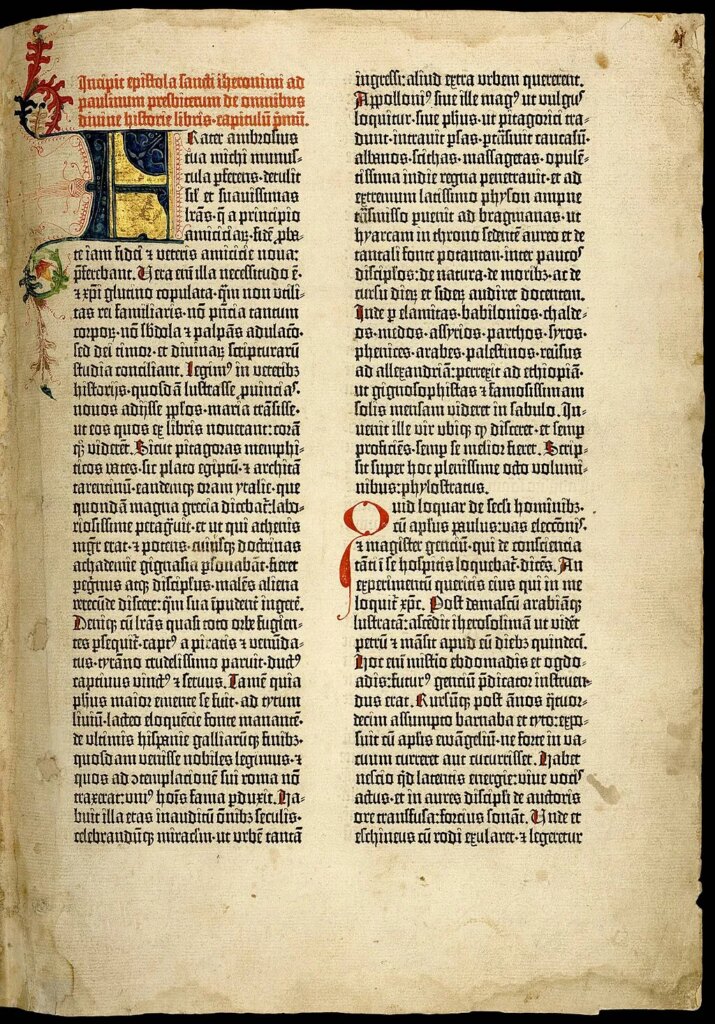 Incipit epistola sancti iheronimi ad
paulinum presbiterum de omnibus
divine historie libris·capitulū p̄mū.
Frater ambrosius
tua michi munus⸗
cula ꝑferens·detulit
sil̄ et suavissimas
lr̄as·q̄ a principio
amiciciaꝝ·fidē ꝓba⸗
te iam fidei ⁊ veteris amicicie nova:
p̄ferebant. Vera em̄ illa necessitudo ē·
⁊ xp̄i glutino copulata·qm̄ non utili⸗
tas rei familiaris·nō p̄ncia tantum
corpoꝝ·nō sb̄dola ⁊ palpās adulacō·
sed dei timor·et divinaꝝ scripturarū
studia conciliant. Legimꝰ in veteribꝫ
historijs·quosdā lustrasse ꝓvinciaꝫ·
novos adijsse ꝓplos·maria trāsisse·
ut eos quos ex libris noverant:corā
qꝫ viderēt. Sicut pitagoras memphi⸗
ticos vates·sic plato egiptū·⁊ architā
tarentinū·eandemqꝫ oram ytalie·que
quondā magna grecia dicebat᷑:labo⸗
riosissime peragᷓvit·et ut qui athenis
mgr̄ erat·⁊ potens·cuiusqꝫ doctrinas
achademie gignasia ꝑsonabāt·fieret
peg̓nus atqꝫ discipl̓us·malēs aliena
verecūde discere:qm̄ sua īpudent᷑ ingerē.
Deniqꝫ cū lr̄as quasi toto orbe fugien⸗
tes ꝑsequit᷑·captꝰ a piratis ⁊ venūda⸗
tus·tyrāno crudelissimo paruit·ductꝰ
captivus vinctꝰ ⁊ servus. Tamē quia
ph̄us maior emente se fuit·ad tytum
liviū·lacteo eloquēcie fonte manantē·
de ultimis hispanie galliarūqꝫ finibꝫ·
quosdam venisse nobiles legimus·⁊
quos ad ɔtemplacionē sui roma nō
traxerat:uniꝰ hoīs fama ꝑduxit. Ha⸗
buit illa etas inauditū ōnibꝫ seculis·
celebrandūqꝫ miracl̓m·ut urbē tantā
ingressi:aliud extra urbem quererent.
Appolloniꝰ sive ille magꝰ ut vulgus
loquitur·sive ph̄us·ut pitagorici tra⸗
dunt·intravit ꝑsas·ꝑtrāsivit caucasū·
albanos·scithas·massagetas·opulē⸗
tissima indie regna penetravit·et ad
extremum latissimo physon ampne
trāsmisso ꝑvenit ad bragmanas·ut
hyarcam in throno sedentē aureo et de
tantali fonte potantem·inter paucos
discipl̓os:de natura·de moribꝫ·ac de
cursu dieꝝ et sideꝝ audiret docentem.
Inde ꝑ elamitas·babilonios·chalde⸗
os·medos·assyrios·parthos·syros·
phenices·arabes·palestinos·reūsus
ad allexandriā:perrexit ad ethiopiā·
ut gignosophistas ⁊ famosissimam
solis mensam videret in sabulo. In⸗
venit ille vir ubiqꝫ qꝺ disceret·et semꝑ
proficiēs·semꝑ se melior fieret. Scrip⸗
sit super hoc plenissime octo volumi⸗
nibus:phylostratus.
Quid loquar de seculi hominibꝫ·
cū apl̓us paulus:vas eleccōnis·
⁊ magister genciū·qui de consciencia
tāti ī se hospitis loquebat᷑·dicēs. An
experimentū queritis eius qui in me
loquit᷑ xp̄c. Post damascū arabiāqꝫ
lustratā:ascēdit iherosolimā ut vidēt
petrū ⁊ māsit apud eū diebꝫ quindecī.
Hoc em̄ mistio ebdomadis et ogdo⸗
adis:futurꝰ genciū p̄dicator instruen⸗
dus erat. Rursūqꝫ post ānos qᷓtuor⸗
decim assumpto barnaba et tyto:expo⸗
suit cū apl̓is ewāgeliū·ne forte in va⸗
cuum curreret aut cucurrisset. Habet
nescio qꝺ latentis energie:vive vocꝭ
actus·et in aures discipl̓i de auctoris
ore transfusa:forcius sonāt. Unde et
eschineus cū rodi exularet·⁊ legeretur